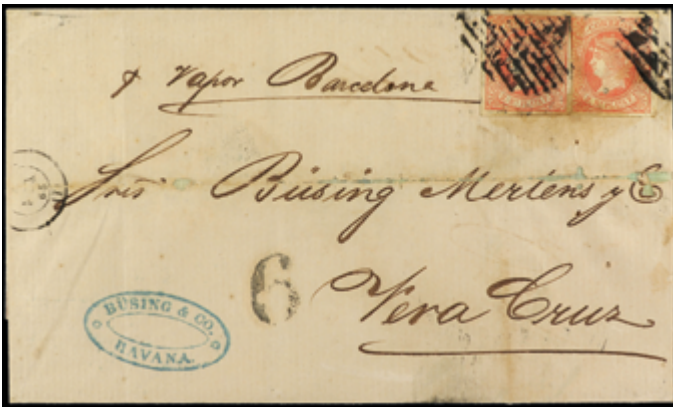 p Vapor Barcelona
Sres Büsing Mertens y Ca
6
Vera Cruz
BÜSING & CO.
HAVANA.